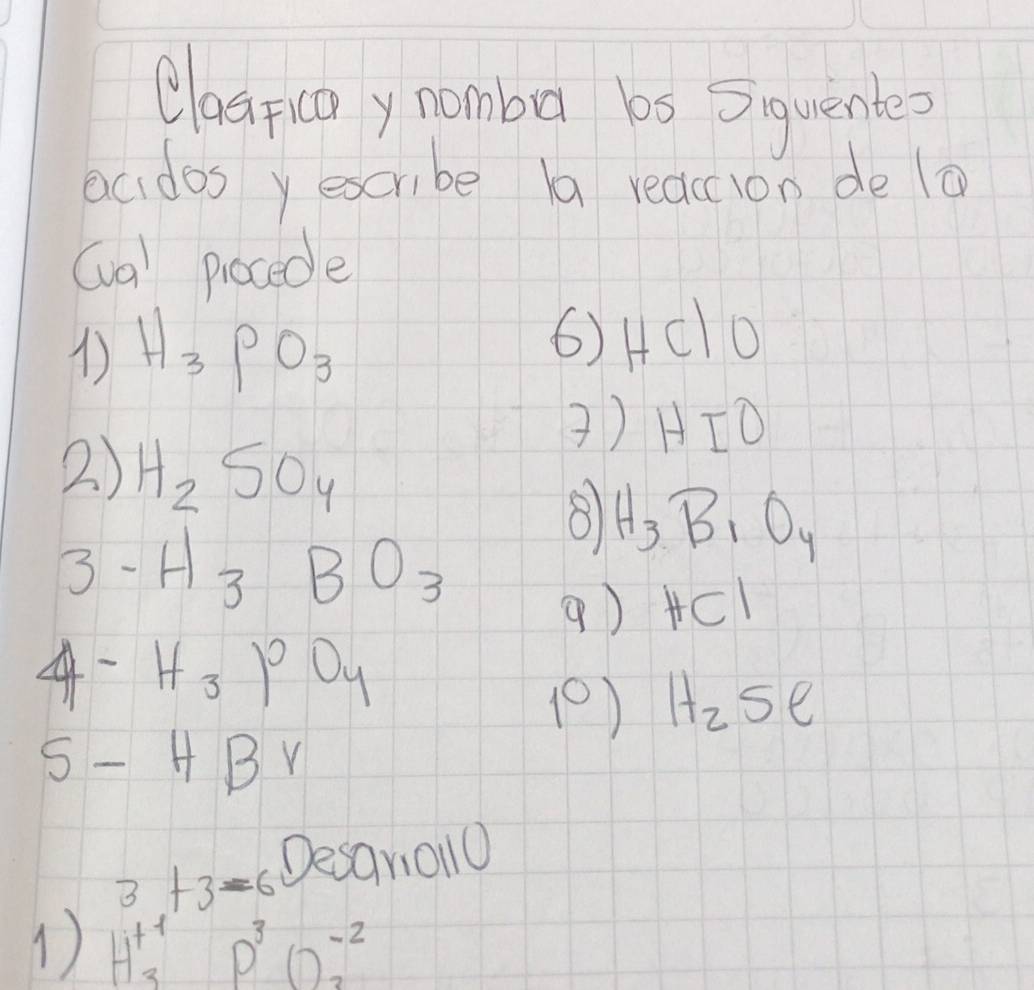 Clasifica y nombra los Siguientes
acidos y escribe la reaccion de la
Cual procede
1) H₃ PO₃
2) H₂ SO₄
3 - H₃ BO₃
4 - H₃ PO₄
5 - H Br
6) HClO
7) HIO
8) H₃ Bi O₄
9) HCl
10) H₂ Se
Desarrollo
3 +3=6
1) H₃⁺¹ P³ O₃⁻²